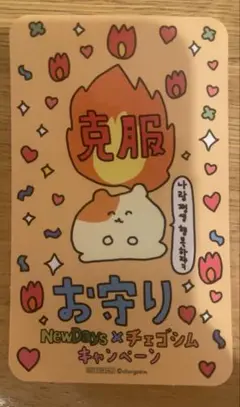 克服
나랑 평생 행복하자
お守り
NewDays×チェゴシム
キャンペーン